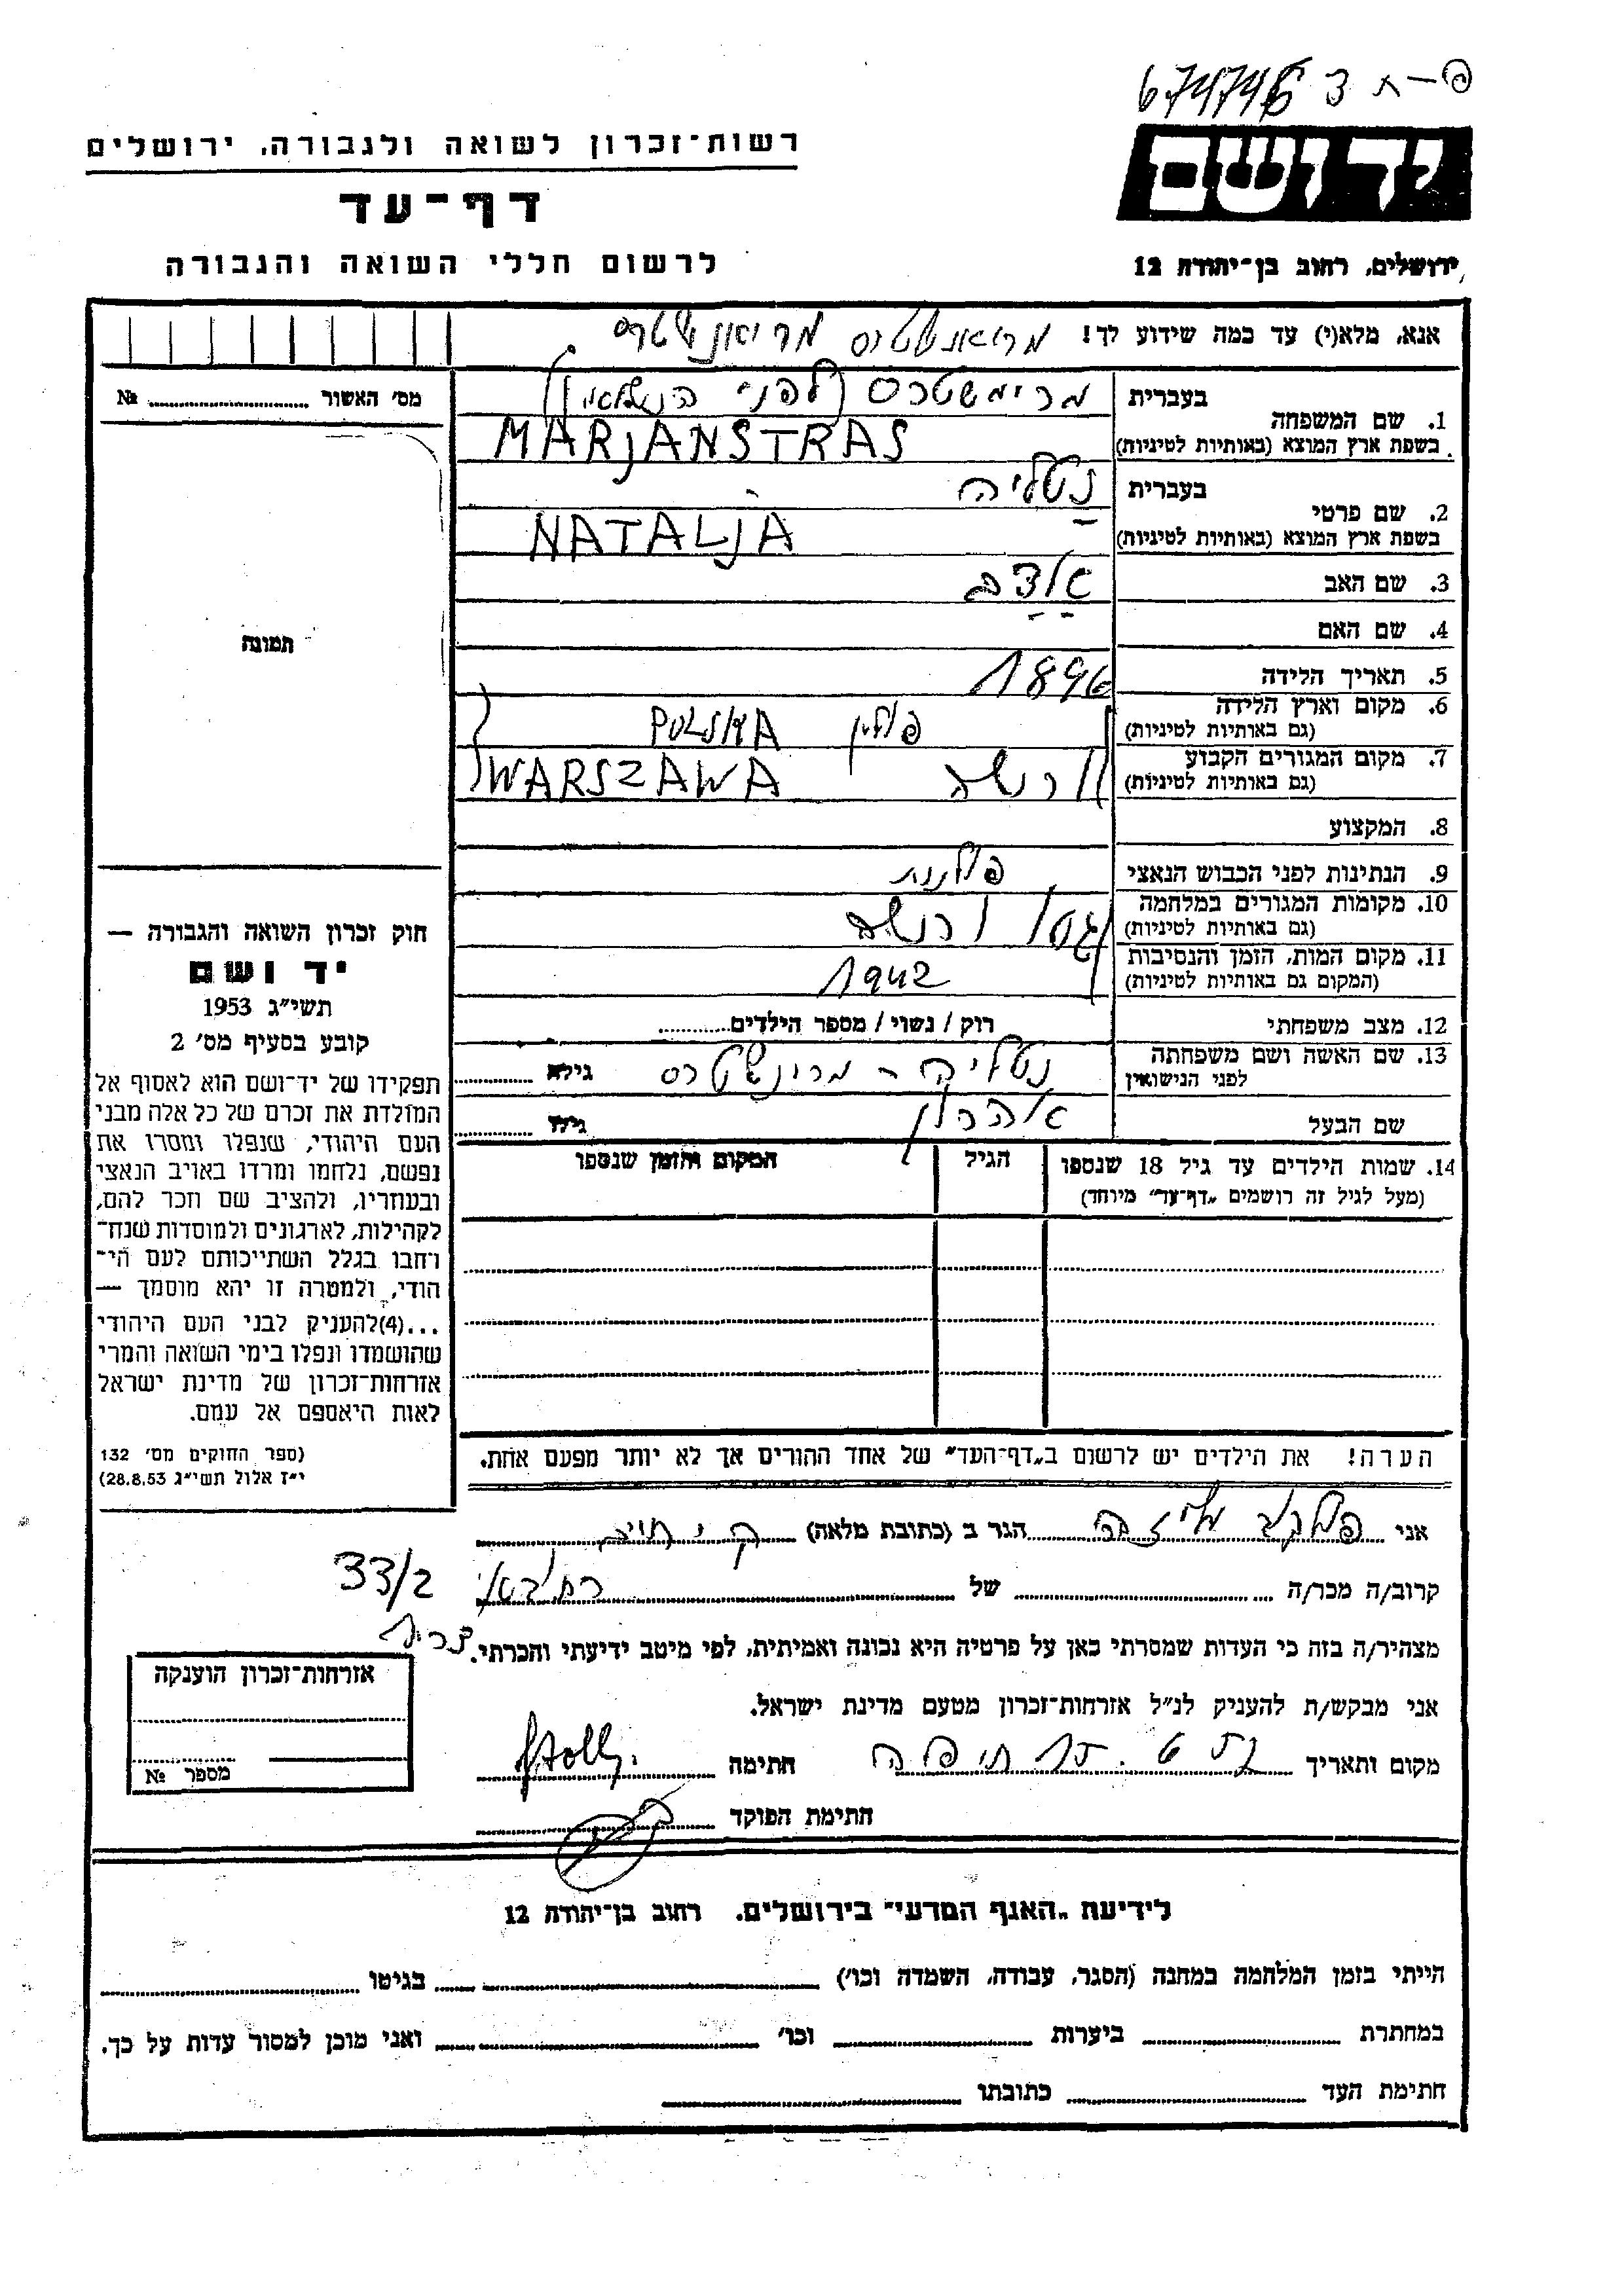 פ–ת 3
רשות־זכרון לשואה ולגבורה, ירושלים
דף־עד
לרשום חללי השואה והגבורה
יד ושם
ירושלים, רחוב בן־יהודה 12
אנא, מלא(י) עד כמה שידוע לך! מריאנשטרס מריאנשטרס
מס׳ האשור №
1. שם המשפחה בעברית (לפני הנשואין)
בשפת ארץ המוצא (באותיות לטיניות) MARJANSTRAS
2. שם פרטי בעברית נטליה
בשפת ארץ המוצא (באותיות לטיניות) NATALJA
3. שם האב
4. שם האם
5. תאריך הלידה 1896
6. מקום וארץ הלידה פולין POLSKA
(גם באותיות לטיניות)
7. מקום המגורים הקבוע ורשה WARSZAWA
(גם באותיות לטיניות)
8. המקצוע
9. הנתינות לפני הכבוש הנאצי פולנית
10. מקומות המגורים במלחמה גטו ורשה
(גם באותיות לטיניות)
11. מקום המות, הזמן והנסיבות 1942
(המקום גם באותיות לטיניות)
12. מצב משפחתי רוק / נשוי / מספר הילדים
13. שם האשה ושם משפחתה נטליה - מרינשטרס גילה
לפני הנישואין
שם הבעל אהרון גילו
14. שמות הילדים עד גיל 18 שנספו הגיל המקום והזמן שנספו
(מעל לגיל זה רושמים „דף־עד״ מיוחד)
הערה! את הילדים יש לרשום ב„דף־העד״ של אחד ההורים אך לא יותר מפעם אחת.
תמונה
חוק זכרון השואה והגבורה —
יד ושם
תשי״ג 1953
קובע בסעיף מס׳ 2
תפקידו של יד־ושם הוא לאסוף אל
המולדת את זכרם של כל אלה מבני
העם היהודי, שנפלו ומסרו את
נפשם, נלחמו ומרדו באויב הנאצי
ובעוזריו, ולהציב שם וזכר להם,
לקהילות, לארגונים ולמוסדות שנח־
רבו בגלל השתייכותם לעם הי־
הודי, ולמטרה זו יהא מוסמך —
...(4)להעניק לבני העם היהודי
שהושמדו ונפלו בימי השואה והמרי
אזרחות־זכרון של מדינת ישראל
לאות היאספם אל עמם.
(ספר החוקים מס׳ 132
י״ז אלול תשי״ג 28.8.53)
אני הגר ב (כתובת מלאה)
קרוב/ה מכר/ה של 33/2
מצהיר/ה בזה כי העדות שמסרתי כאן על פרטיה היא נכונה ואמיתית, לפי מיטב ידיעתי והכרתי.
אני מבקש/ת להעניק לנ״ל אזרחות־זכרון מטעם מדינת ישראל.
מקום ותאריך חתימה
חתימת הפוקד
אזרחות־זכרון הוענקה
מספר №
לידיעת „האגף המדעי״ בירושלים. רחוב בן־יהודה 12
הייתי בזמן המלחמה במחנה (הסגר, עבודה, השמדה וכו׳) בגיטו
במחתרת ביערות וכו׳ ואני מוכן למסור עדות על כך.
חתימת העד כתובתו